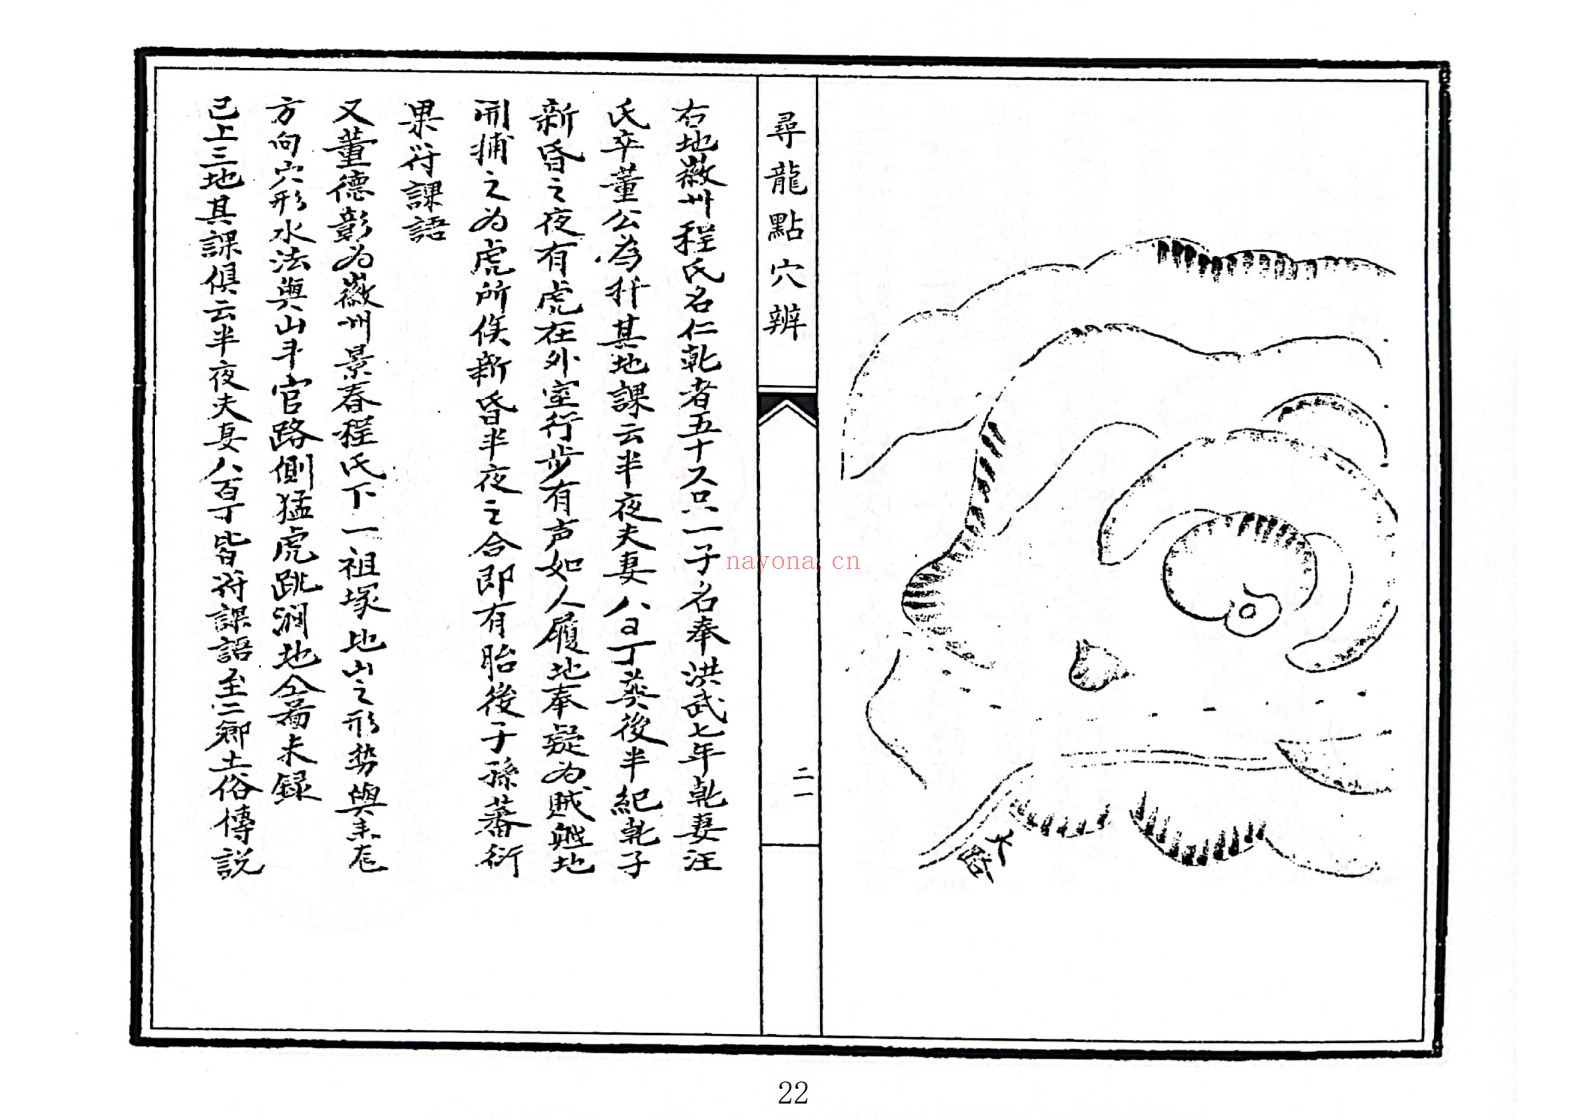 大路
尋龍點穴辨
二一
右地徽州程氏名仁乾者五十又只一子名奉洪武七年乾妻汪
氏卒董公為扦其地課云半夜夫妻八百丁葵後半紀乾子
新昏之夜有虎在外室行步有声如人履地奉疑为賊興地
開捕之为虎所俟新昏半夜之合即有胎後子孫蕃衍
果符課語
又董德彰为徽州景春程氏下一祖塚地山之形勢與
方向穴形水法與山斗官路側猛虎跳澗地仝局未録
已上三地其課俱云半夜夫妻八百丁皆符課語至二鄉土俗傳説
nayona.cn
22